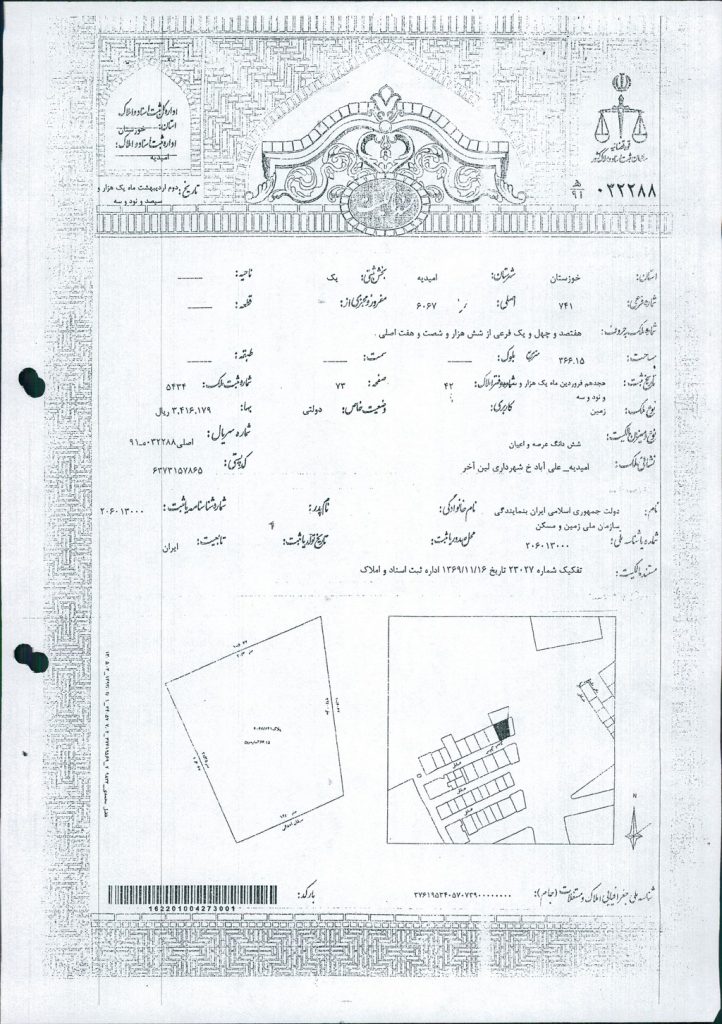 اداره کل ثبت اسناد و املاک
استان: خوزستان
اداره ثبت اسناد و املاک:
امیدیه
تاریخ: دوم اردیبهشت ماه یک هزار و
سیصد و نود و سه
قوه قضائیه
سازمان ثبت اسناد و املاک کشور
۰۳۲۲۸۸ ه‍ ۹۱
استان: خوزستان شهرستان: امیدیه بخش ثبتی: یک ناحیه: ـــــ
شماره فرعی: ۷۴۱ اصلی: ۶۰۶۷ مفروز و مجزی از: قطعه: ـــــ
شماره ملک به حروف: هفتصد و چهل و یک فرعی از شش هزار و شصت و هفت اصلی .
مساحت: ۳۶۶.۱۵ متر مربع بلوک: ـــــ سمت: ـــــ طبقه: ـــــ
تاریخ ثبت: هجدهم فروردین ماه یک هزار و شماره دفتر املاک: ۴۲ صفحه: ۷۳ شماره ثبت ملک: ۵۴۳۴
و نود و سه
نوع ملک: زمین کاربری: وضعیت خاص: دولتی بها: ۳،۴۱۶،۱۷۹ ریال
نوع و میزان مالکیت: شش دانگ عرصه و اعیان شماره سریال: اصلی۰۳۲۲۸۸هـ۹۱
نشانی ملک: امیدیه_ علی آباد خ شهرداری لین آخر کد پستی: ۶۳۷۳۱۵۷۸۶۵
نام: دولت جمهوری اسلامی ایران بنمایندگی نام خانوادگی: نام پدر: شماره شناسنامه یا ثبت: ۲۰۶۰۱۳۰۰۰
سازمان ملی زمین و مسکن
شماره یا شناسه ملی: ۲۰۶۰۱۳۰۰۰ محل صدور یا ثبت: تاریخ تولد یا ثبت: تابعیت: ایران
مستند مالکیت: تفکیک شماره ۲۳۰۲۷ تاریخ ۱۳۶۹/۱۱/۱۶ اداره ثبت اسناد و املاک
N
شناسه ملی جغرافیایی املاک و مستغلات (جام): ۳۷۶۱۹۵۳۴۰۵۷۰۷۳۹۰۰۰۰۰۰۰۰۰
بارکد:
162201004273001